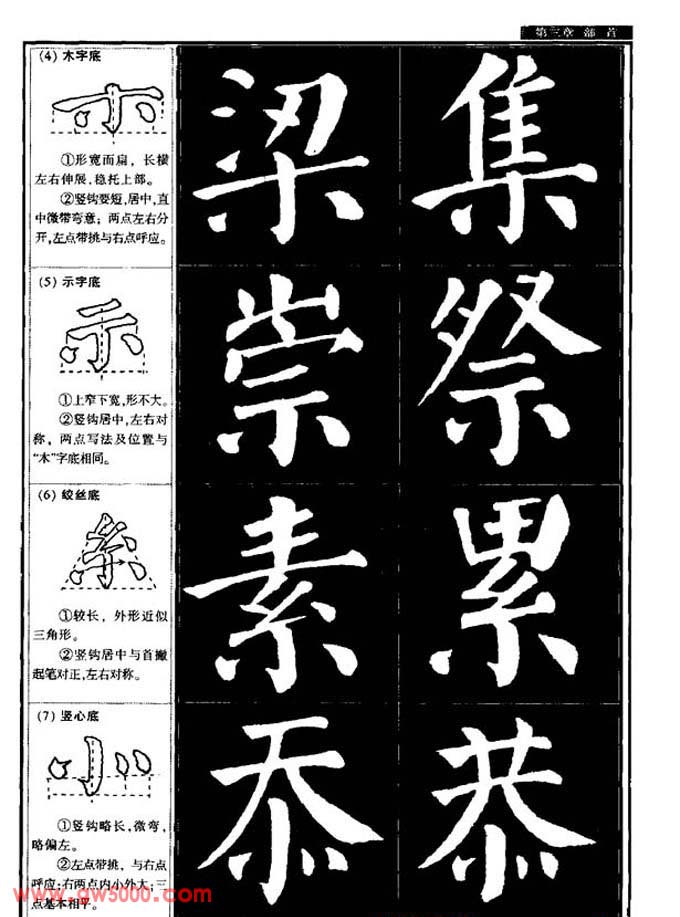 第三章 部 首
(4) 木字底
①形宽而扁，长横
左右伸展，稳托上部。
②竖钩要短，居中，直
中微带弯意；两点左右分
开，左点带挑与右点呼应。
梁 集
(5) 示字底
①上窄下宽，形不大。
②竖钩居中，左右对
称，两点写法及位置与
“木”字底相同。
崇 祭
(6) 绞丝底
①较长，外形近似
三角形。
②竖钩居中与首撇
起笔对正，左右对称。
素 累
(7) 竖心底
①竖钩略长，微弯，
略偏左。
②左点带挑，与右点
呼应；右两点内小外大；三
点基本相平。
忝 恭
www.gw5000.com